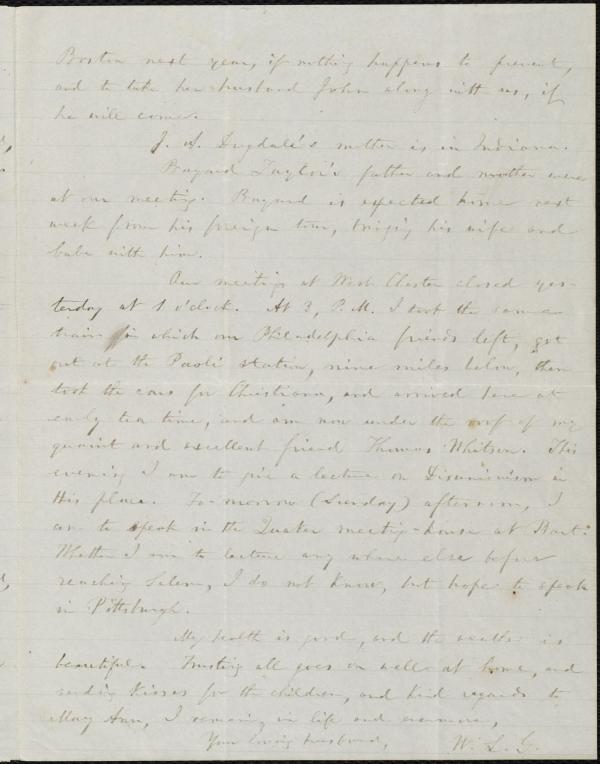 Boston next year, if nothing happens to prevent,
and to take her husband John along with us, if
he will come.
J. A. Dugdale's mother is in Indiana.
Bayard Taylor's father and mother were
at our meeting. Bayard is expected home next
week from his foreign tour, bringing his wife and
babe with him.
Our meeting at West Chester closed yes-
terday at 1 o'clock. At 3, P.M. I took the same
train in which our Philadelphia friends left, got
out at the Paoli station, nine miles below, then
took the cars for Christiana, and arrived here at
early tea time, and am now under the roof of my
quaint and excellent friend Thomas Whitson. This
evening I am to give a lecture on Disunionism in
this place. To-morrow (Sunday) afternoon, I
am to speak in the Quaker meeting-house at Bart.
Whether I am to lecture any where else before
reaching Salem, I do not know, but hope to speak
in Pittsburgh.
My health is good, and the weather is
beautiful. Trusting all goes on well at home, and
sending kisses for the children, and kind regards to
Mary Ann, I remain, in life and evermore,
Your loving husband,
W. L. G.